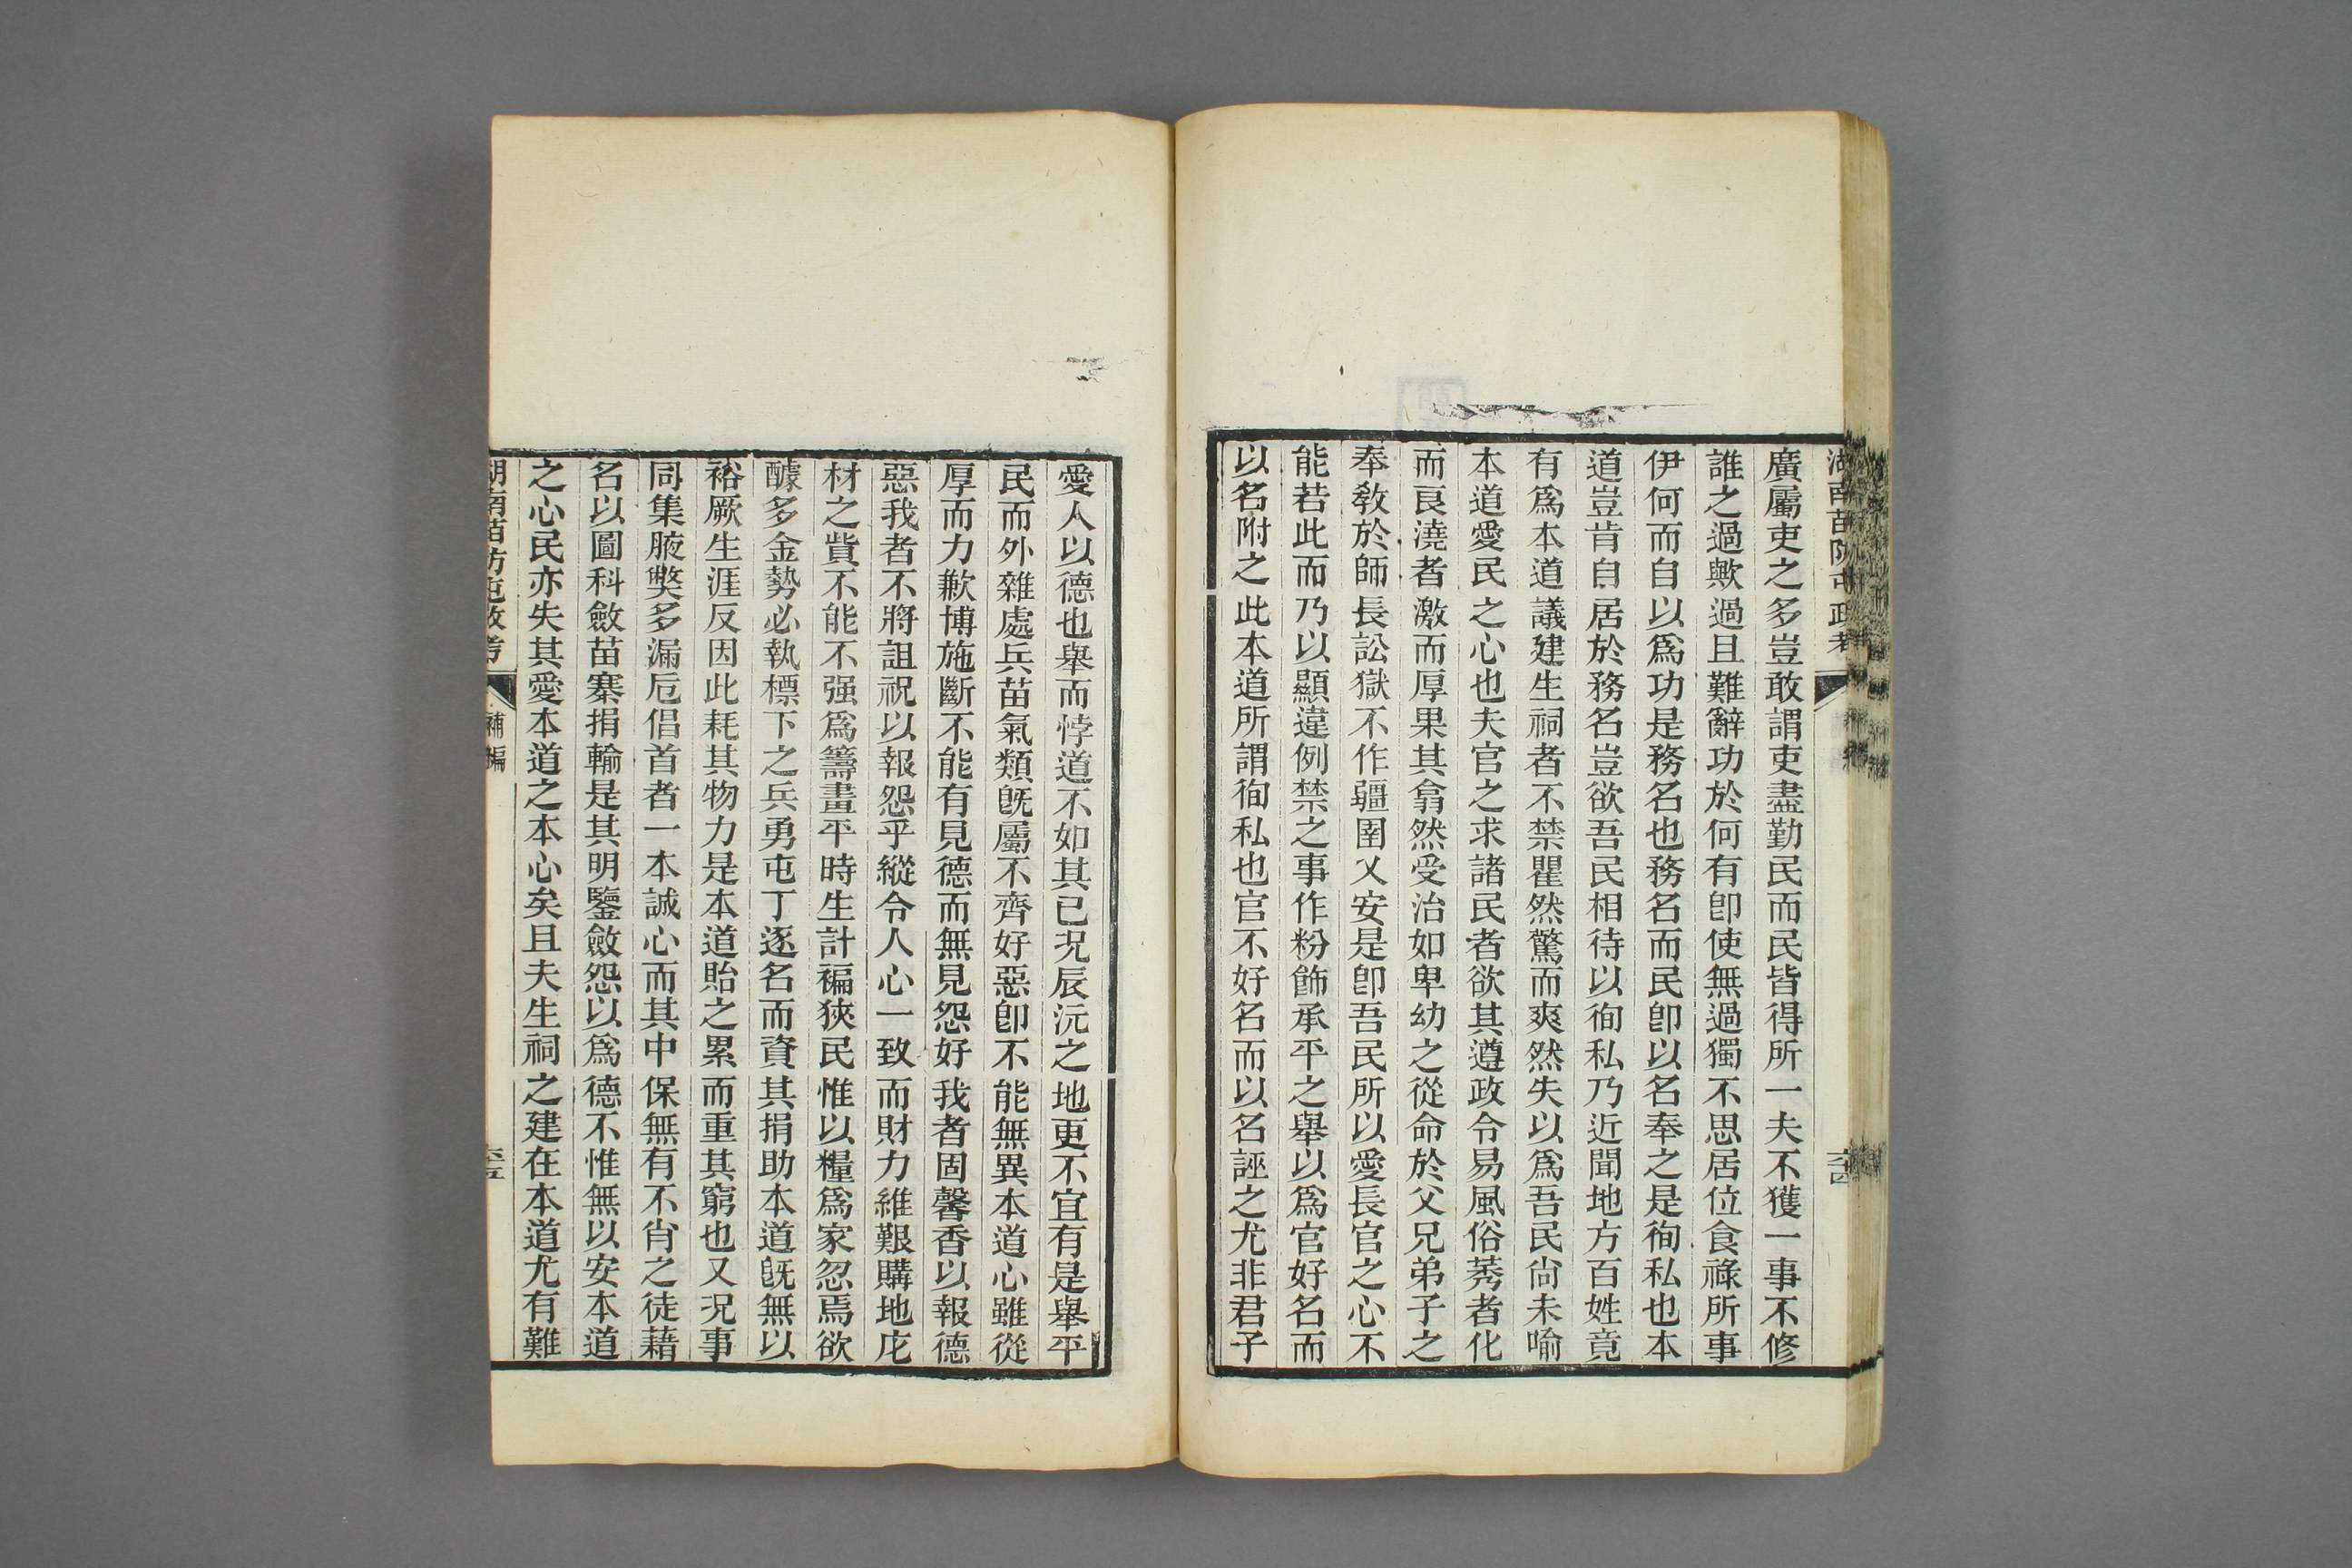 湖南苗防屯政考
六十四
廣屬吏之多豈敢謂吏盡勤民而民皆得所一夫不獲一事不修
誰之過歟過且難辭功於何有卽使無過獨不思居位食祿所事
伊何而自以爲功是務名也務名而民卽以名奉之是徇私也本
道豈肯自居於務名豈欲吾民相待以徇私乃近聞地方百姓竟
有爲本道議建生祠者不禁瞿然驚而爽然失以爲吾民尙未喻
本道愛民之心也夫官之求諸民者欲其遵政令易風俗莠者化
而良澆者激而厚果其翕然受治如卑幼之從命於父兄弟子之
奉教於師長訟獄不作疆圉乂安是卽吾民所以愛長官之心不
能若此而乃以顯違例禁之事作粉飾承平之舉以爲官好名而
以名附之此本道所謂徇私也官不好名而以名誣之尤非君子
愛人以德也舉而悖道不如其已況辰沅之地更不宜有是舉平
民而外雜處兵苗氣類旣屬不齊好惡卽不能無異本道心雖從
厚而力歉博施斷不能有見德而無見怨好我者固馨香以報德
惡我者不將詛祝以報怨乎縱令人心一致而財力維艱購地庀
材之貲不能不强爲籌畫平時生計褊狹民惟以糧爲家忽焉欲
醵多金勢必執標下之兵勇屯丁逐名而資其捐助本道旣無以
裕厥生涯反因此耗其物力是本道貽之累而重其窮也又況事
同集腋獘多漏卮倡首者一本誠心而其中保無有不肖之徒藉
名以圖科斂苗寨捐輸是其明鑒斂怨以爲德不惟無以安本道
之心民亦失其愛本道之本心矣且夫生祠之建在本道尤有難
湖南苗防屯政考
補編
六十五